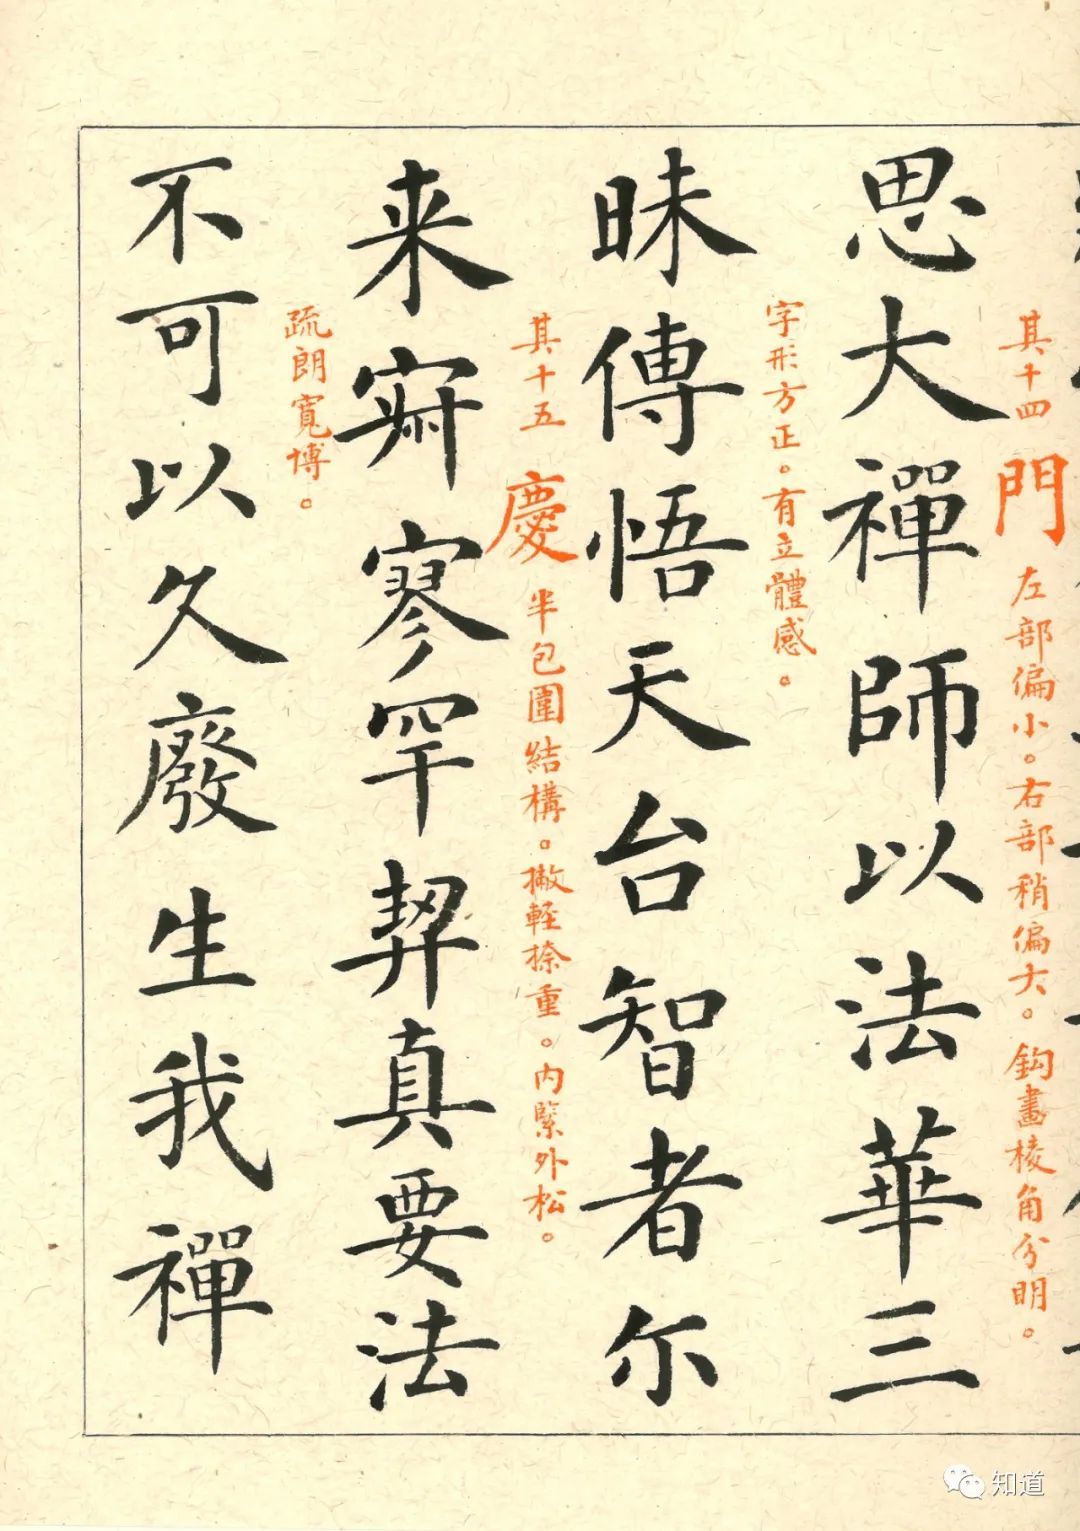 其十四 門 左部偏小。右部稍偏大。鈎畫棱角分明。
思大禪師以法華三
字形方正。有立體感。
昧傳悟天台智者尔
其十五 慶 半包圍結構。撇輕捺重。内緊外松。
来寂寥罕契真要法
疏朗寬博。
不可以久廢生我禪
知道